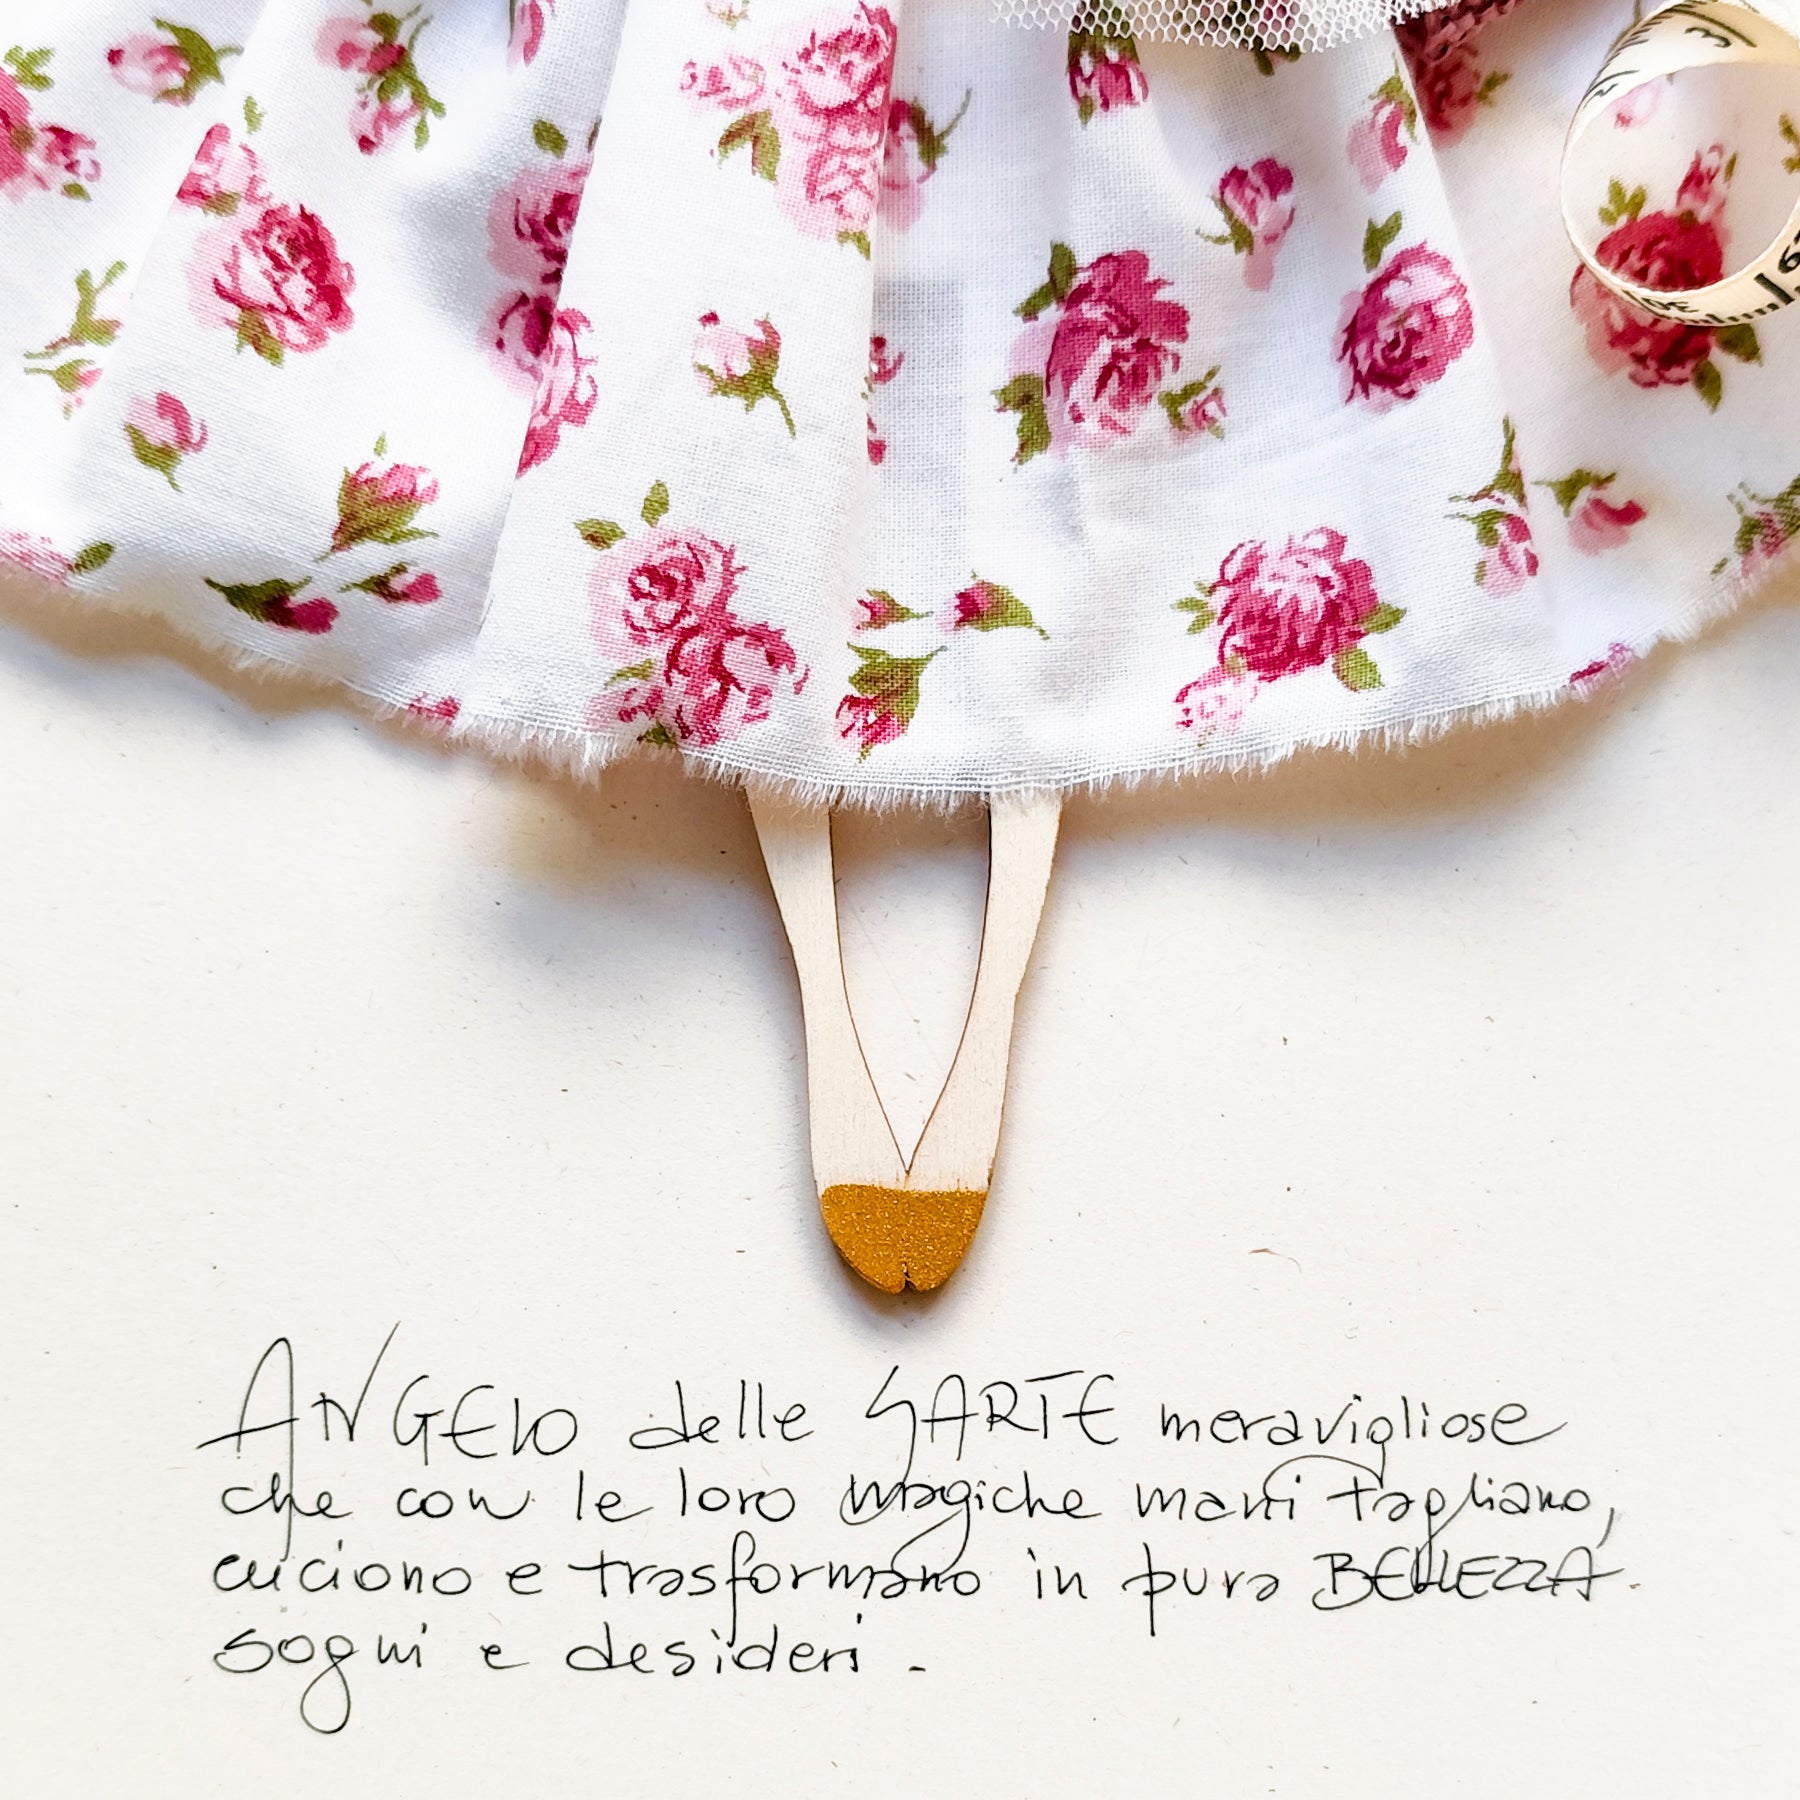 ANGELO delle SARTE meravigliose
che con le loro magiche mani tagliano,
cuciono e trasformano in pura BELLEZZA
sogni e desideri.